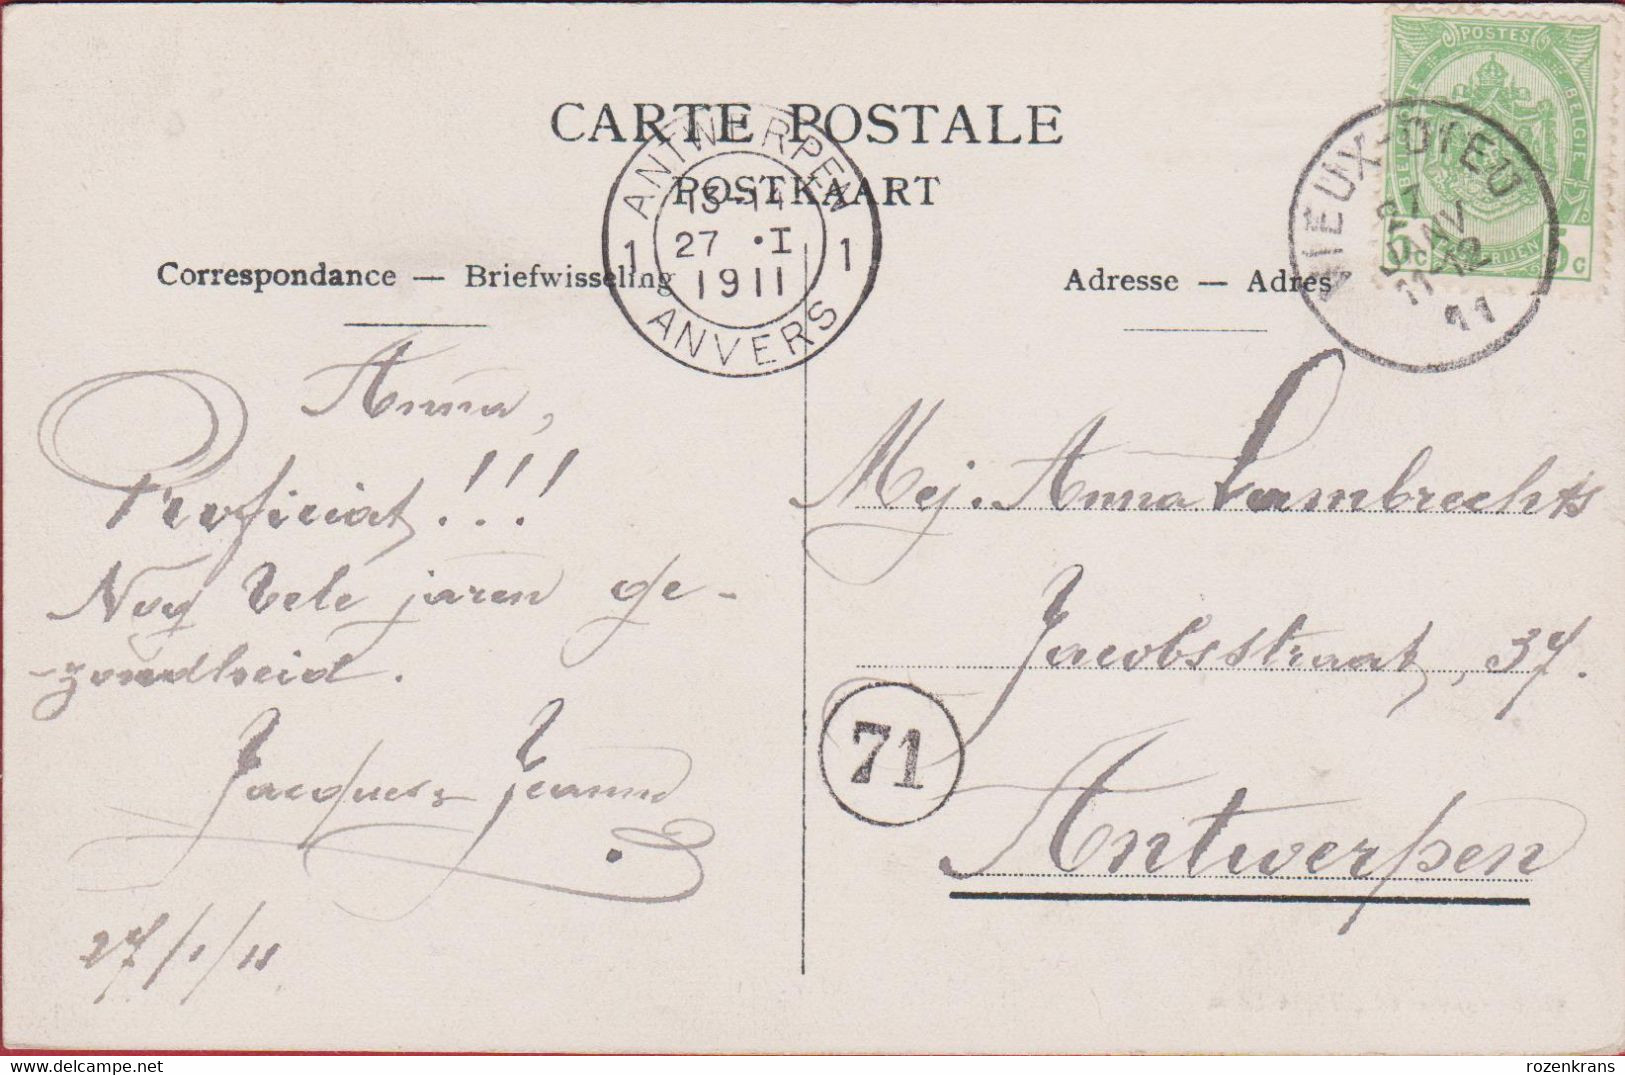 CARTE POSTALE
POSTKAART
Correspondance — Briefwisseling
Adresse — Adres
ANTWERPEN
13-14
27 •I
1911
1 1
ANVERS
VIEUX-DIEU
JANV
11-12
11
POSTES
BELGIE
5c 5c
Anna,
Proficiat!!!
Nog vele jaren ge-
-zondheid.
Jacques &
27/1/11
Mej. Anna Lambrechts
Jacobsstraat, 37.
Antwerpen
71
rozenkrans